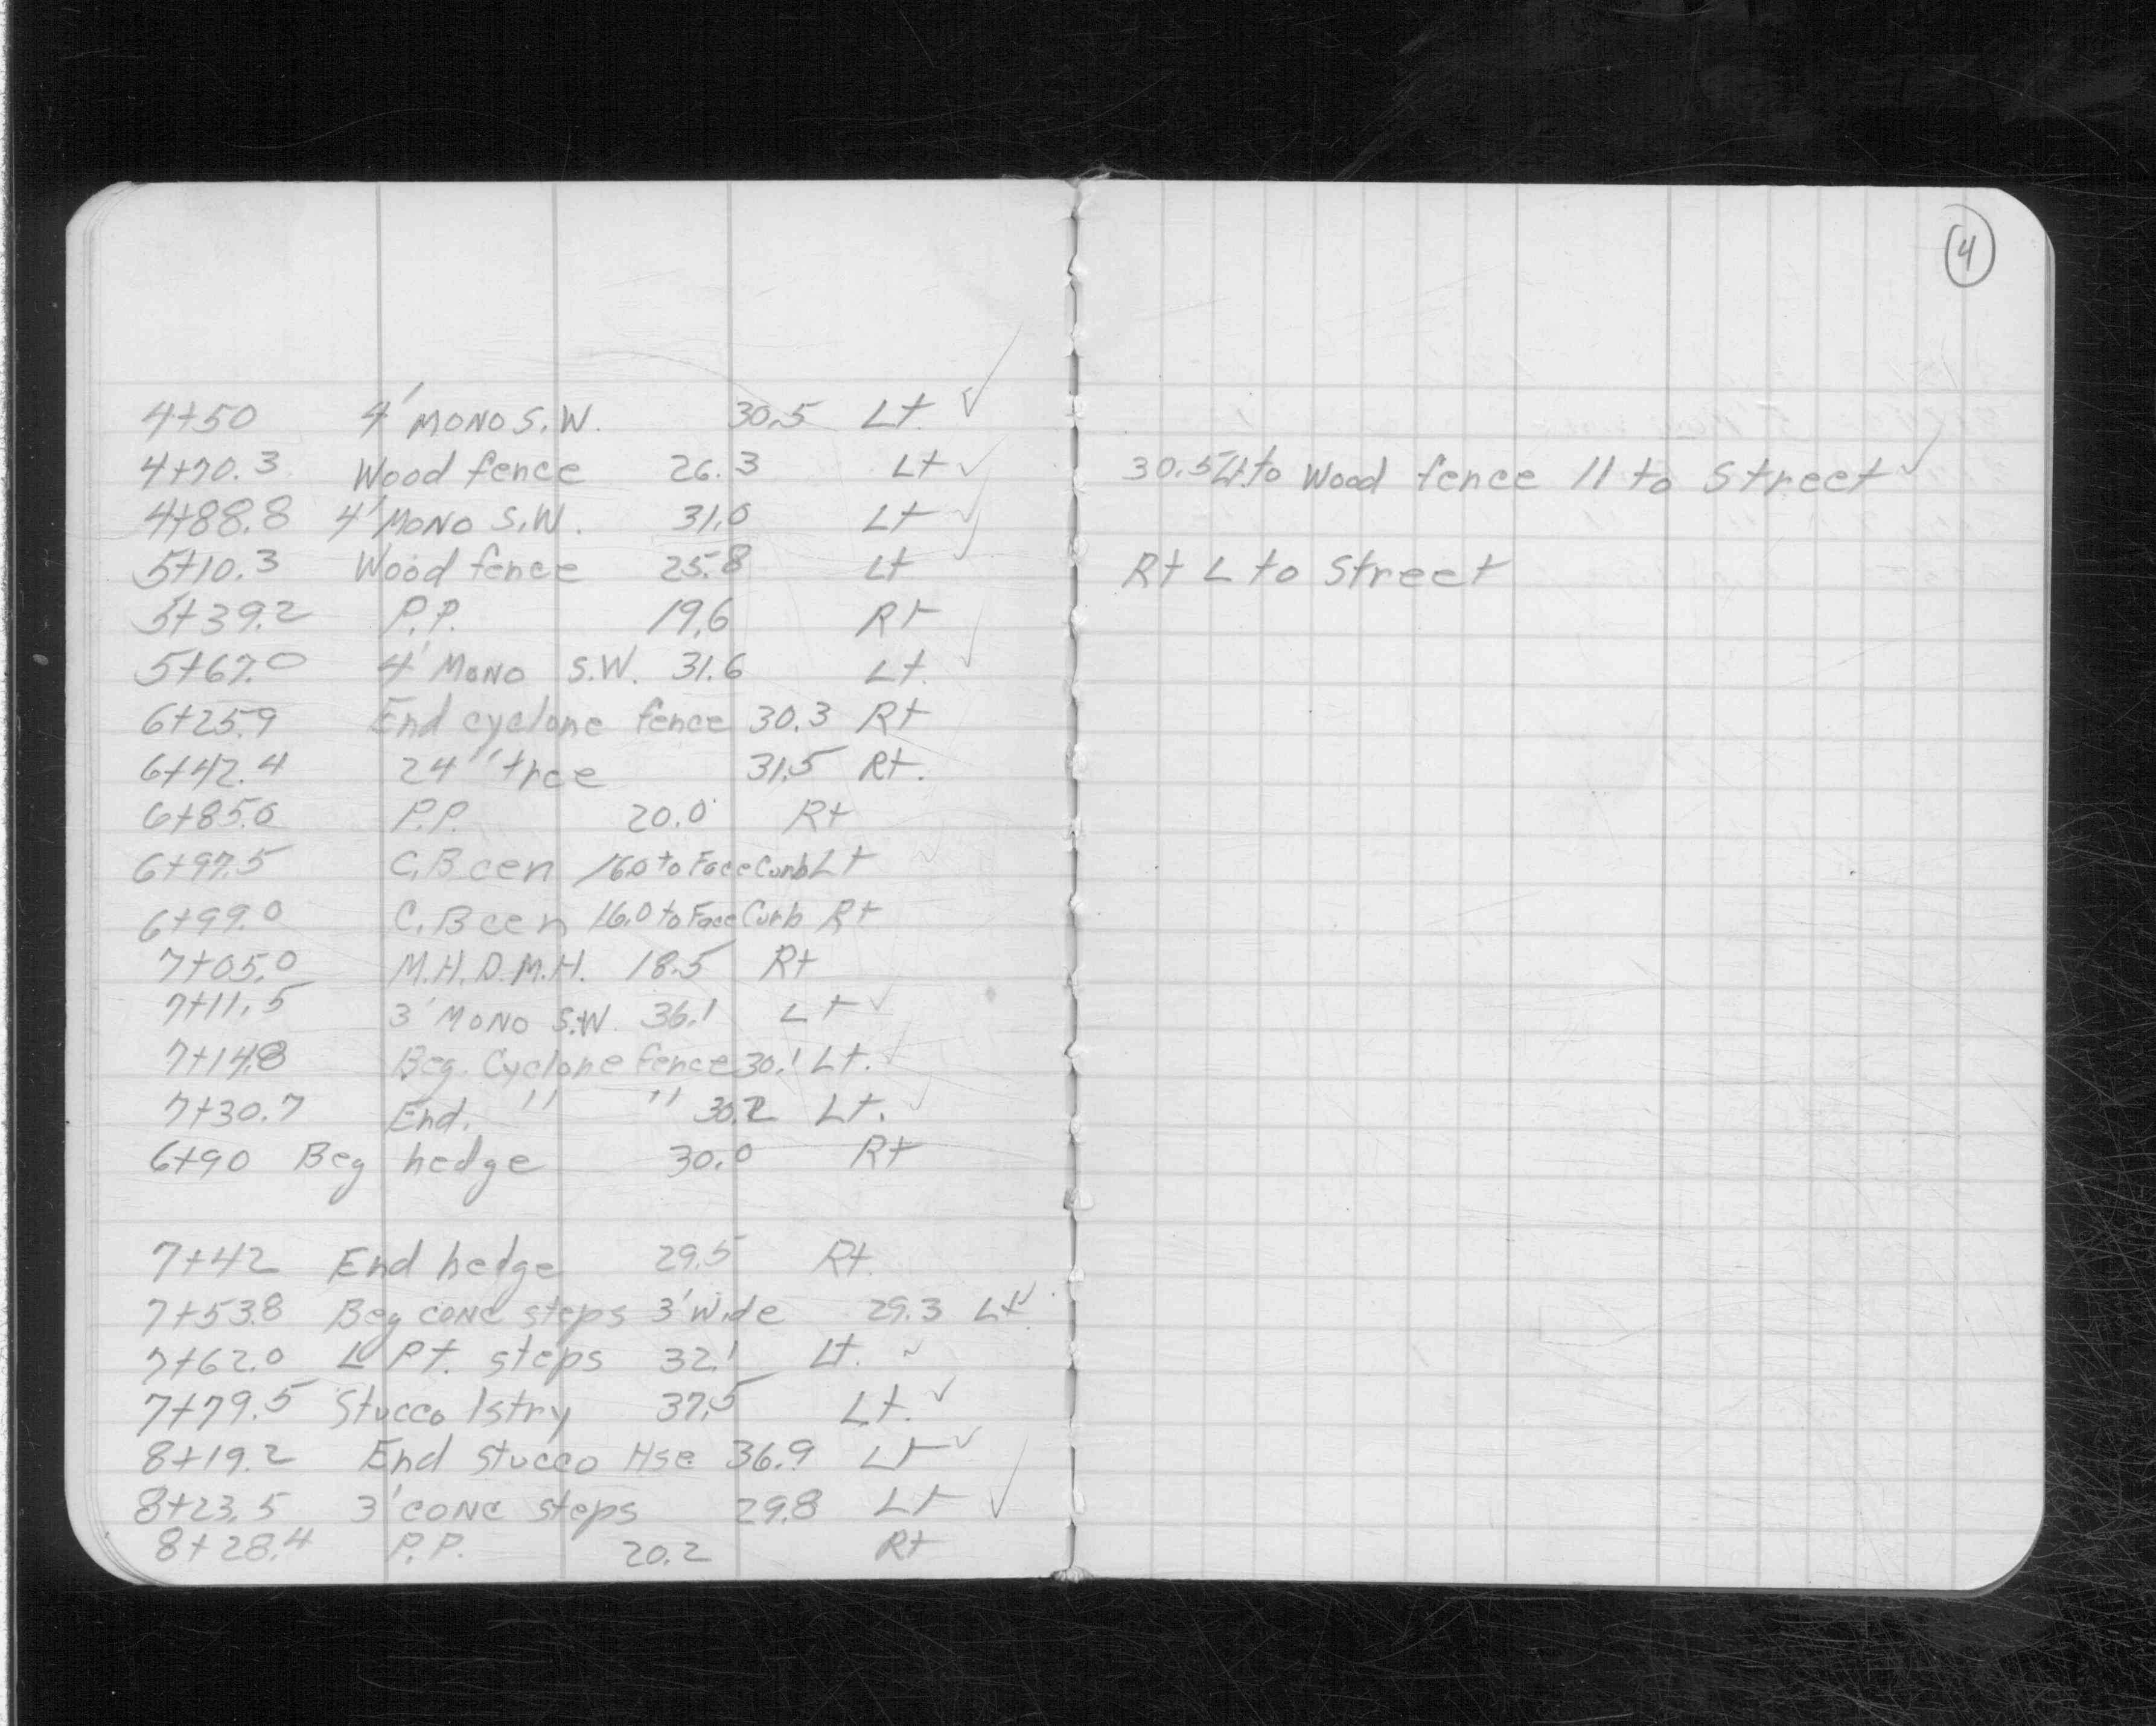 4
4+50 4' MONO S.W. 30.5 Lt. ✓
4+70.3 Wood fence 26.3 Lt ✓ 30.5 Lt. to Wood fence // to Street ✓
4+88.8 4' MONO S.W. 31.0 Lt ✓
5+10.3 Wood fence 25.8 Lt ✓ Rt L to Street
5+39.2 P.P. 19.6 Rt
5+67.0 4' MONO S.W. 31.6 Lt. ✓
6+25.9 End cyclone fence 30.3 Rt
6+42.4 24" tree 31.5 Rt.
6+85.0 P.P. 20.0 Rt
6+97.5 C.B cen 16.0 to Face Curb Lt ~
6+99.0 C.B cen 16.0 to Face Curb Rt
7+05.0 M.H. D.M.H. 18.5 Rt
7+11.5 3' MONO S.W. 36.1 Lt ✓
7+14.8 Beg. Cyclone fence 30.1 Lt. ✓
7+30.7 End. " " 30.2 Lt. ✓
6+90 Beg hedge 30.0 Rt
7+42 End hedge 29.5 Rt.
7+53.8 Beg conc steps 3' Wide 29.3 Lt ✓
7+62.0 L Pt. steps 32.1 Lt. ~
7+79.5 Stucco 1 stry 37.5 Lt. ✓
8+19.2 End stucco Hse 36.9 Lt ✓
8+23.5 3' conc steps 29.8 Lt ✓
8+28.4 P.P. 20.2 Rt